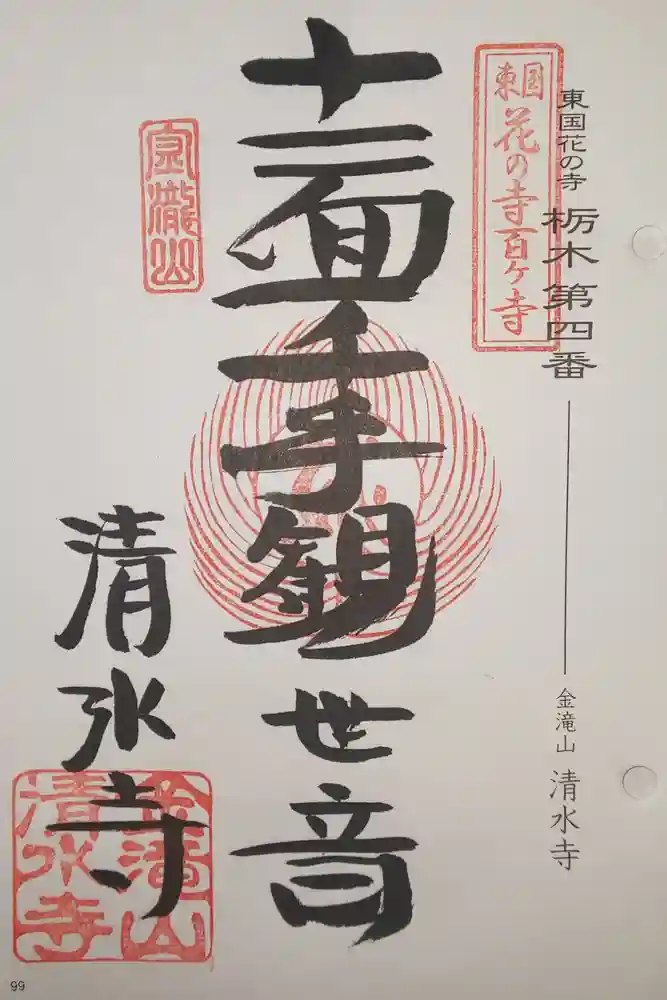 東国花の寺 栃木第四番 金滝山 清水寺
東国
花の寺百ヶ寺
十一面千手観世音
金瀧山
清水寺
金滝山
清水寺
99